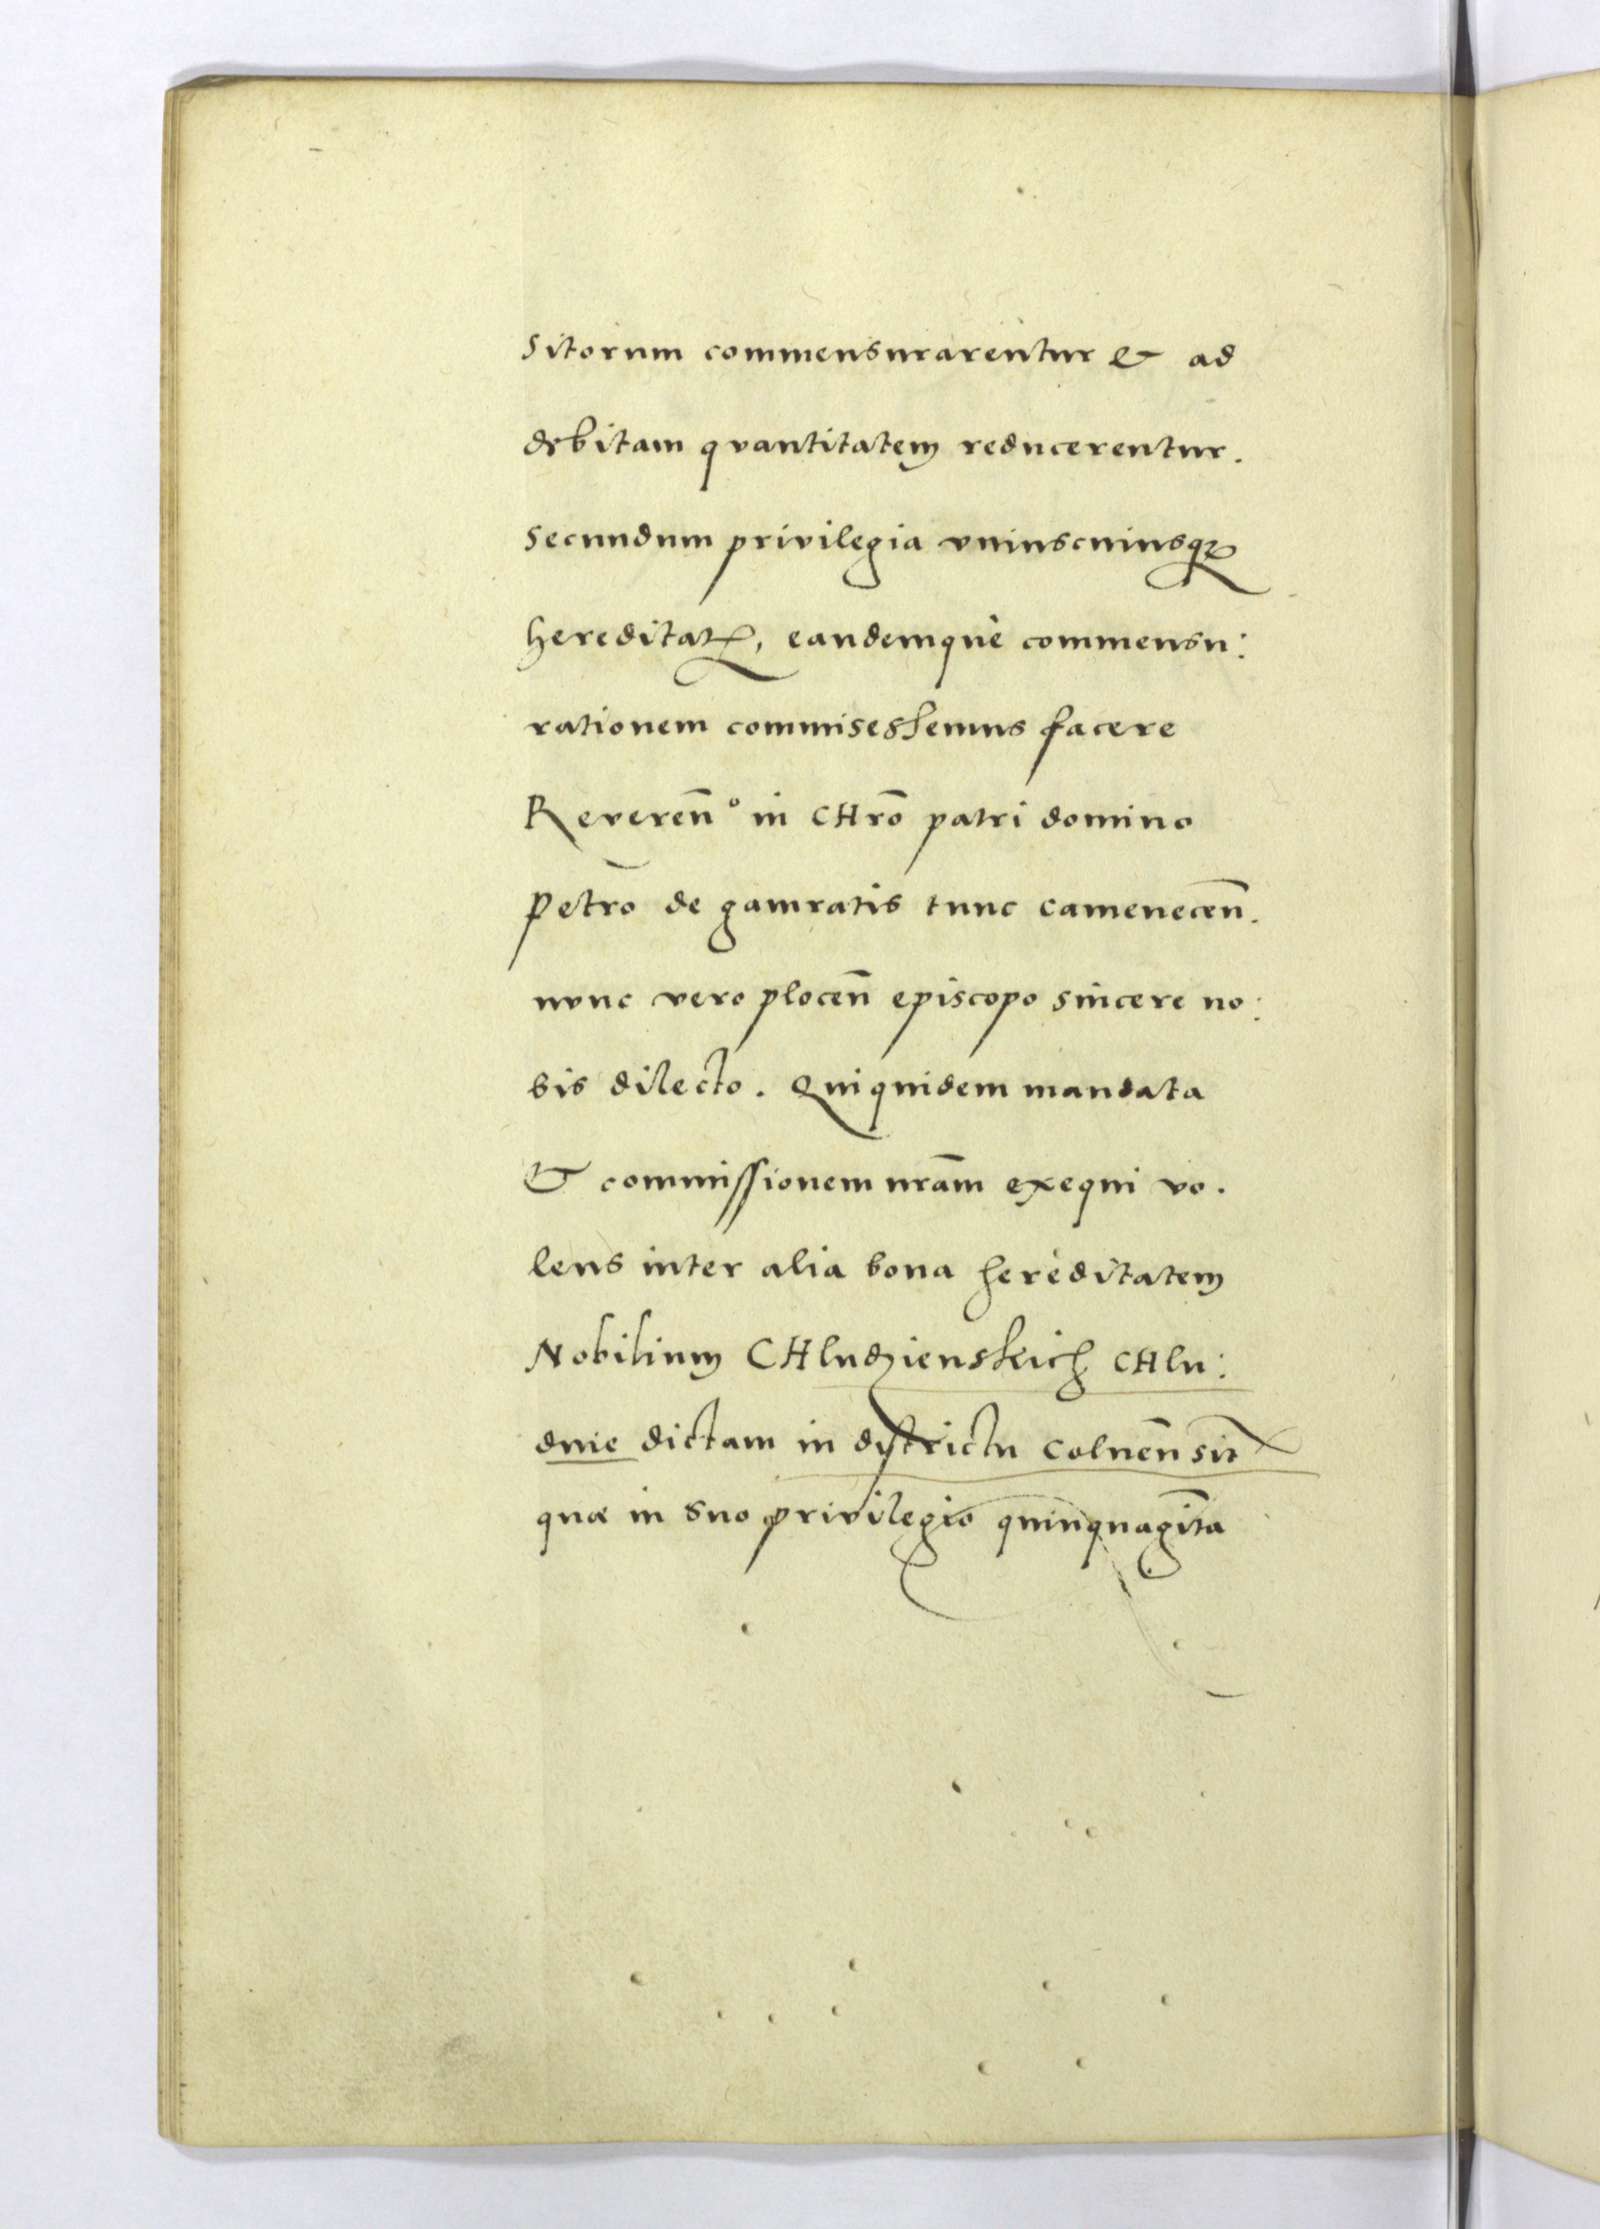 sitorum commensurarentur & ad
debitam quantitatem reducerentur.
secundum privilegia uniuscuiusqꝫ
hereditatꝭ, eandemque commensu:
rationem commisessemus facere
Reverenͫ° in CHrō patri domino
Petro de gamratis tunc camenecen̄.
nunc vero plocen̄ episcopo sincere no:
bis dilecto. Qui quidem mandata
& commissionem nrām exequi vo.
lens inter alia bona hereditatem
Nobilium CHludzienskich CHlu:
dnie dictam in districtu Colnen̄ sitꝭ
quæ in suo privilegio quinquagīta